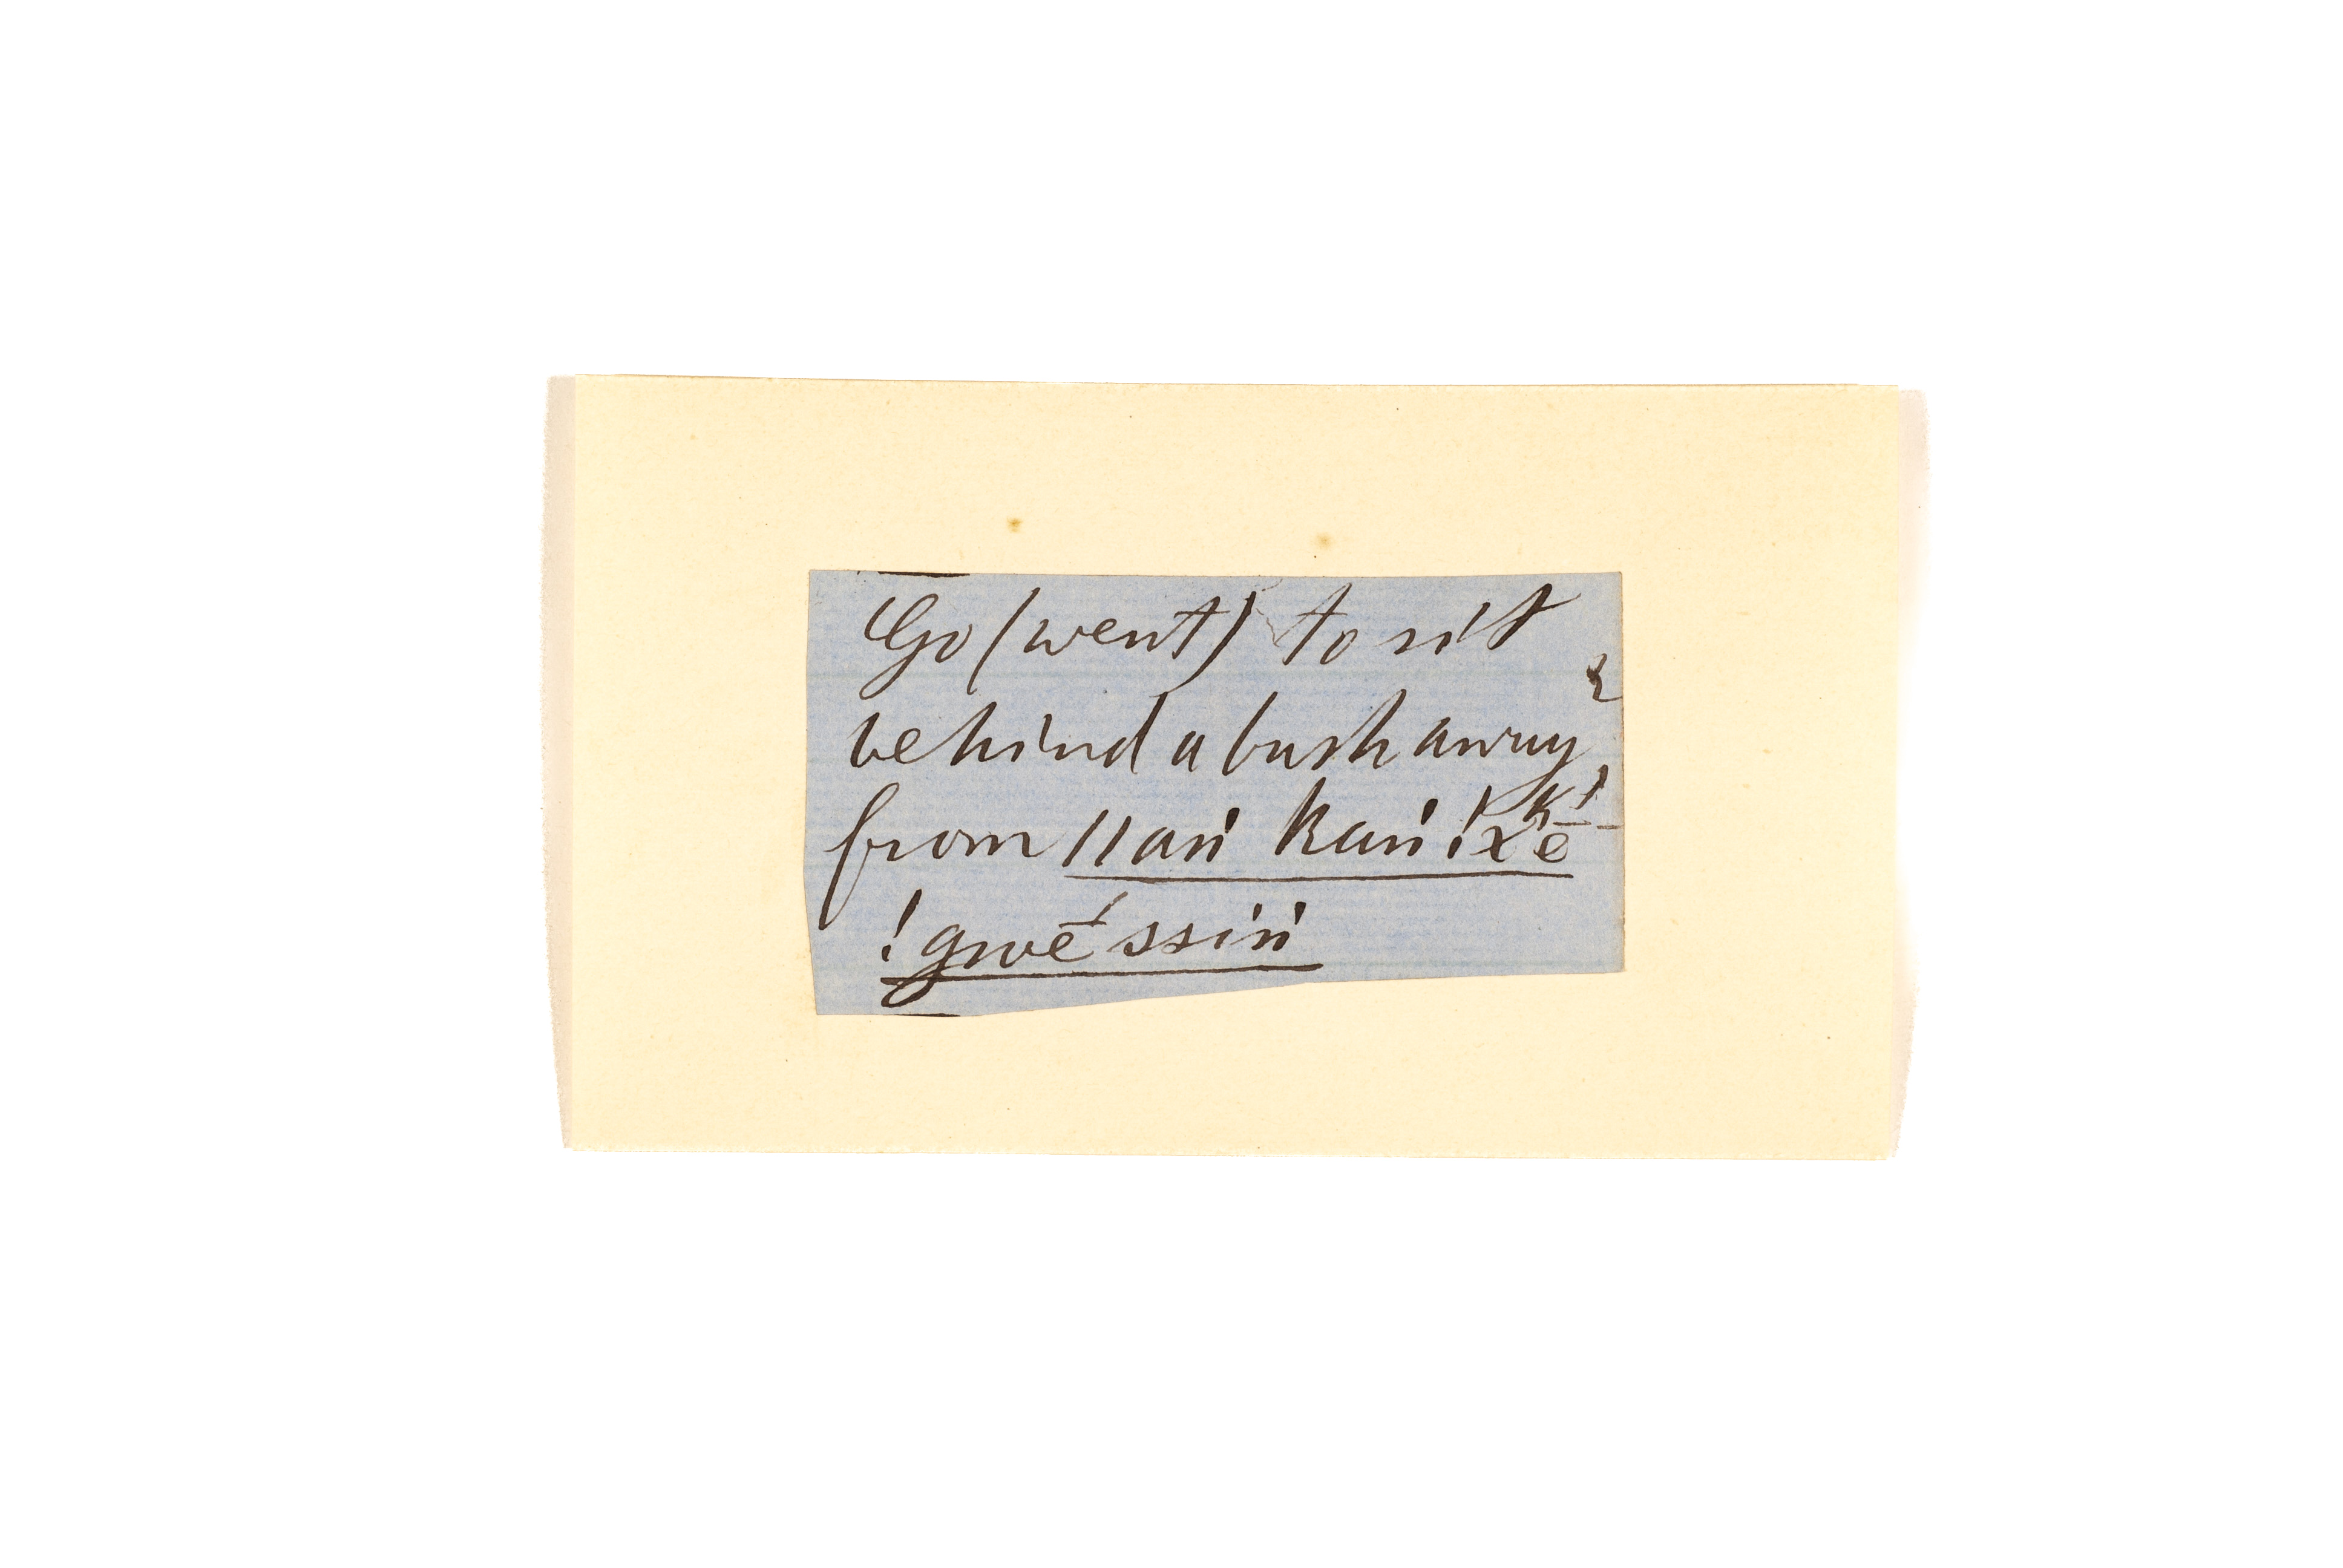 Go (went) to sit
behind a bush away
from ǁań kań !xḱē
!gwḗssiń